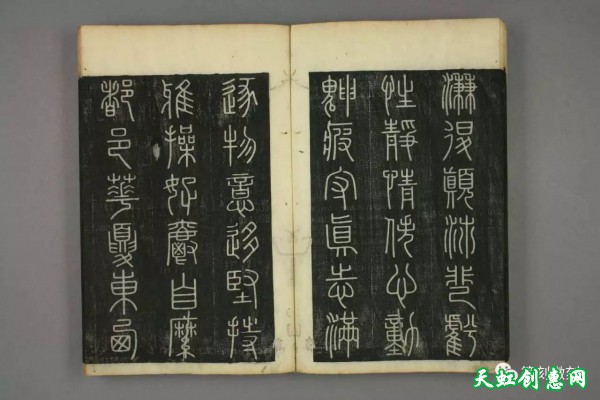 廉退顛沛匪虧
性靜情逸心動
神疲守眞志滿
逐物意移堅持
雅操好爵自縻
都邑華夏東西
天虹创意网